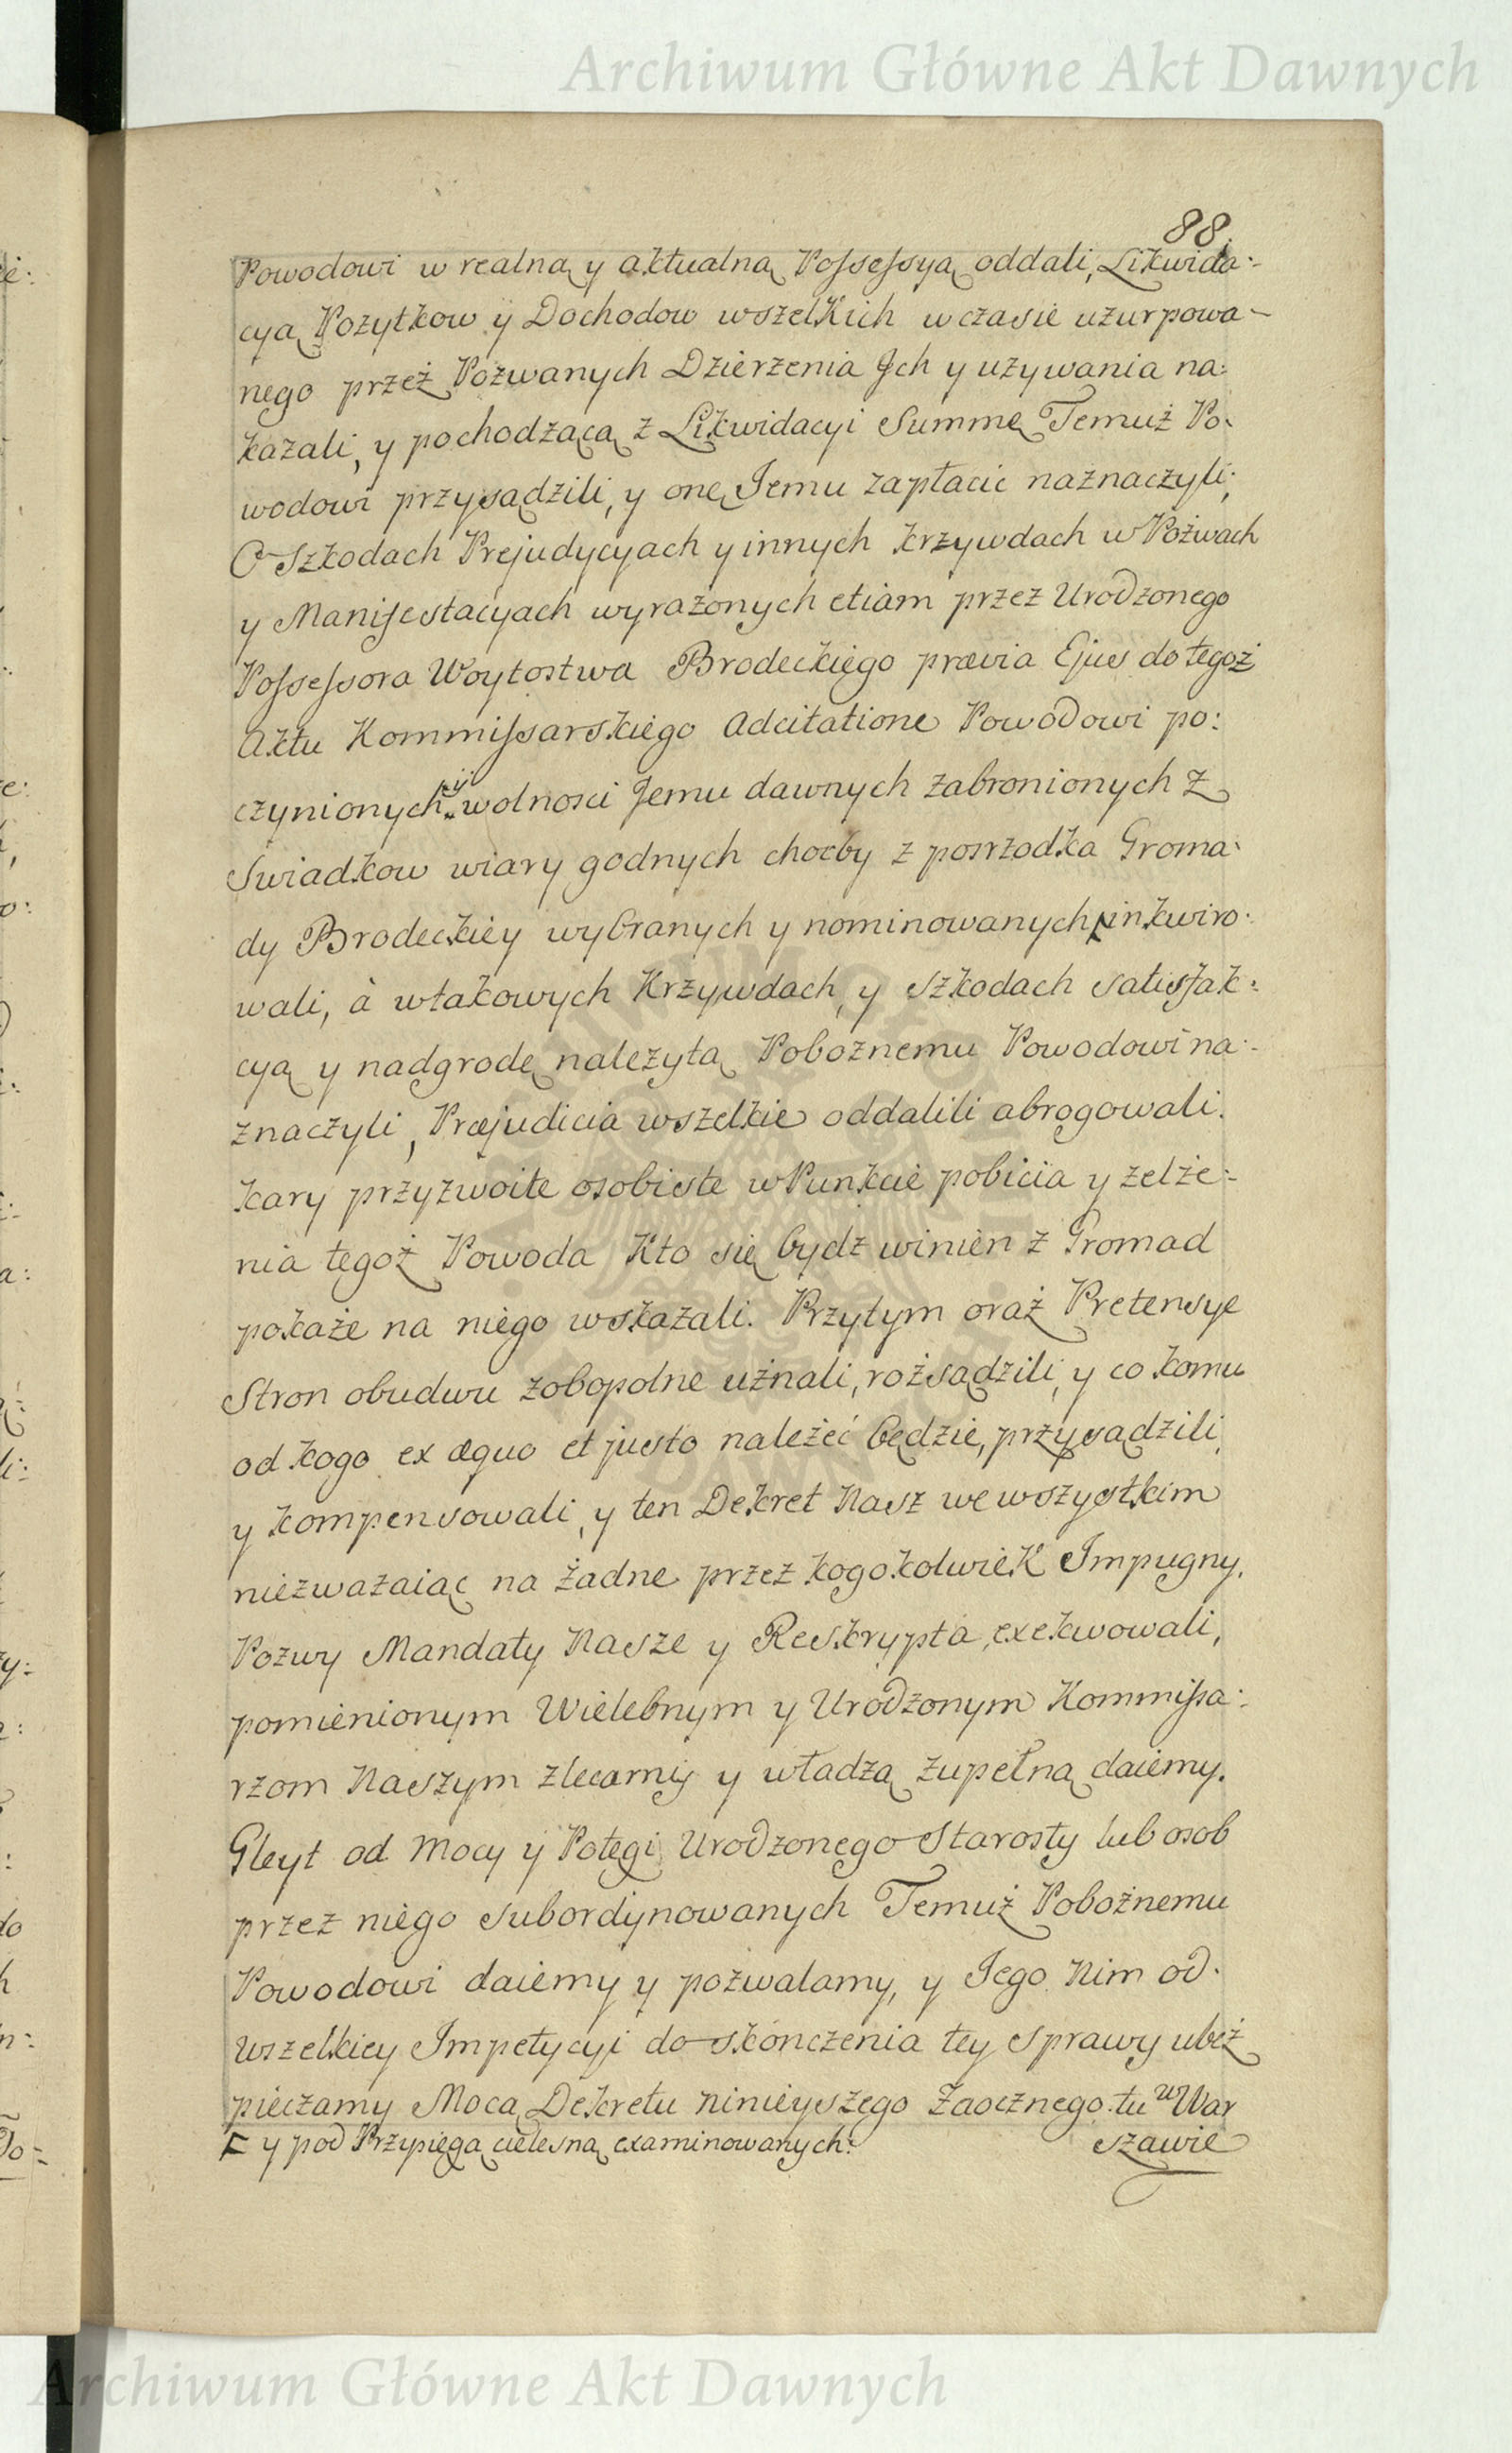 Archiwum Główne Akt Dawnych
88.
Powodowi w realną y aktualną Possessyą oddali, Likwida-
cyą Pozytkow y Dochodow wszelkich w czasie uzurpowa-
nego przeż Pozwanych Dzierzenia Jch y uzywania na-
kazali, y pochodzącą z Likwidacyi Summę Temuż Po-
wodowi przysądzili, y onę Jemu zapłacic naznaczyli;
O Szkodach Prejudycyach y innych krzywdach w Pozwach
y Manifestacyach wyrazonych etiam przez Urodzonego
Possessora Woytostwa Brodeckiego prævia Ejus do tegoż
Aktu Kommissarskiego Adcitatione Powodowi po:
czynionych, y wolnosci Jemu dawnych zabronionych z
Swiadkow wiary godnych chocby z posrzodka Groma-
dy Brodeckiey wybranych y nominowanych inkwiro-
wali, à w takowych Krzywdach, y szkodach satisfak:
cyą y nadgrodę nalezytą Poboznemu Powodowi na-
znaczyli, Præjudicia wszelkie oddalili abrogowali.
kary przyzwoite osobiste w Punkcie pobicia y zelże-
nia tegoż Powoda Kto się bydz winien z Gromad
pokaże na niego wskazali. Przytym oraż Pretensye
Stron obudwu zobopolne uznali, rożsądzili, y co komu
od kogo ex æquo et justo należeć będzie, przysądzili,
y kompensowali, y ten Dekret Nasz we wszystkim
niezwazaiąc na żadne przez kogokolwiek Impugny,
Pozwy Mandaty Nasze y Reskrypta, exekwowali,
pomienionym Wielebnym y Urodzonym Kommissa-
rzom Naszym zlecamy y władzą zupełną daiemy.
Gleyt od Mocy y Potęgi Urodzonego Starosty lub osob
przez niego subordynowanych Temuż Pobożnemu
Powodowi daiemy y pozwalamy, y Jego Nim od
wszelkiey Impetycyi do skończenia tey sprawy ubeż
pieczamy Mocą Dekretu ninieyszego Zaocznego. tu w War
y pod Przysięgą cielesną examinowanych: szawie
Archiwum Główne Akt Dawnych